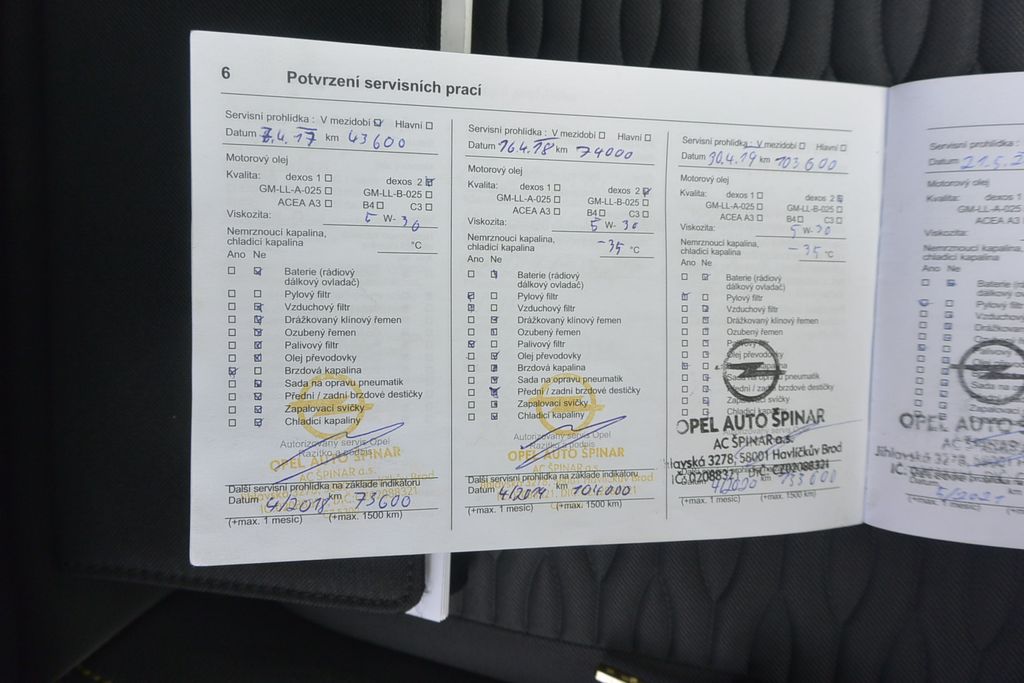 6 Potvrzení servisních prací
Servisní prohlídka : V mezidobí ☑ Hlavní ☐
Datum 7.4.17 km 43600
Motorový olej
Kvalita: dexos 1 ☐ dexos 2 ☑
GM-LL-A-025 ☐ GM-LL-B-025 ☐
ACEA A3 ☐ B4 ☐ C3 ☐
Viskozita: 5 W- 30
Nemrznoucí kapalina,
chladicí kapalina °C
Ano Ne
Baterie (rádiový
dálkový ovladač)
Pylový filtr
Vzduchový filtr
Drážkovaný klínový řemen
Ozubený řemen
Palivový filtr
Olej převodovky
Brzdová kapalina
Sada na opravu pneumatik
Přední / zadní brzdové destičky
Zapalovací svíčky
Chladicí kapaliny
Autorizovaný servis Opel
Razítko a podpis
OPEL AUTO ŠPINAR
AC ŠPINAR a.s.
Další servisní prohlídka na základě indikátoru
Datum 4/2018 km 73600
(+max. 1 měsíc) (+max. 1500 km)
Servisní prohlídka : V mezidobí ☐ Hlavní ☐
Datum 16.4.18 km 74000
Motorový olej
Kvalita: dexos 1 ☐ dexos 2 ☑
GM-LL-A-025 ☐ GM-LL-B-025 ☐
ACEA A3 ☐ B4 ☐ C3 ☐
Viskozita: 5 W- 30
Nemrznoucí kapalina,
chladicí kapalina -35 °C
Ano Ne
Baterie (rádiový
dálkový ovladač)
Pylový filtr
Vzduchový filtr
Drážkovaný klínový řemen
Ozubený řemen
Palivový filtr
Olej převodovky
Brzdová kapalina
Sada na opravu pneumatik
Přední / zadní brzdové destičky
Zapalovací svíčky
Chladicí kapaliny
Autorizovaný servis Opel
Razítko a podpis
OPEL AUTO ŠPINAR
AC ŠPINAR a.s.
Další servisní prohlídka na základě indikátoru
Datum 4/2019 km 104000
(+max. 1 měsíc) (+max. 1500 km)
Servisní prohlídka : V mezidobí ☐ Hlavní ☐
Datum 30.4.19 km 103600
Motorový olej
Kvalita: dexos 1 ☐ dexos 2 ☑
GM-LL-A-025 ☐ GM-LL-B-025 ☐
ACEA A3 ☐ B4 ☐ C3 ☐
Viskozita: 5 W- 30
Nemrznoucí kapalina,
chladicí kapalina -35 °C
Ano Ne
Baterie (rádiový
dálkový ovladač)
Pylový filtr
Vzduchový filtr
Drážkovaný klínový řemen
Ozubený řemen
Olej převodovky
OPEL AUTO ŠPINAR
AC ŠPINAR a.s.
Jihlavská 3278, 58001 Havlíčkův Brod
IČ: 02088321 DIČ: CZ02088321
133600
(+max. 1 měsíc) (+max. 1500 km)
Servisní prohlídka :
Datum 21.5.2
Motorový olej
Kvalita:
GM-LL-A-025
ACEA A3
Viskozita:
Nemrznoucí kapalina,
chladicí kapalina
Ano Ne
Baterie
dálkový
Pylový filtr
Vzduchový
Drážkovaný
Ozubený
Palivový
OPEL AUTO
AC ŠPINAR
Jihlavská 3278,
5/2021
(+max. 1 měsíc)